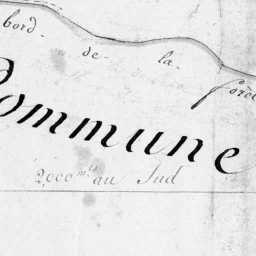 bord de la forêt
Commune
2,000 mts au Sud